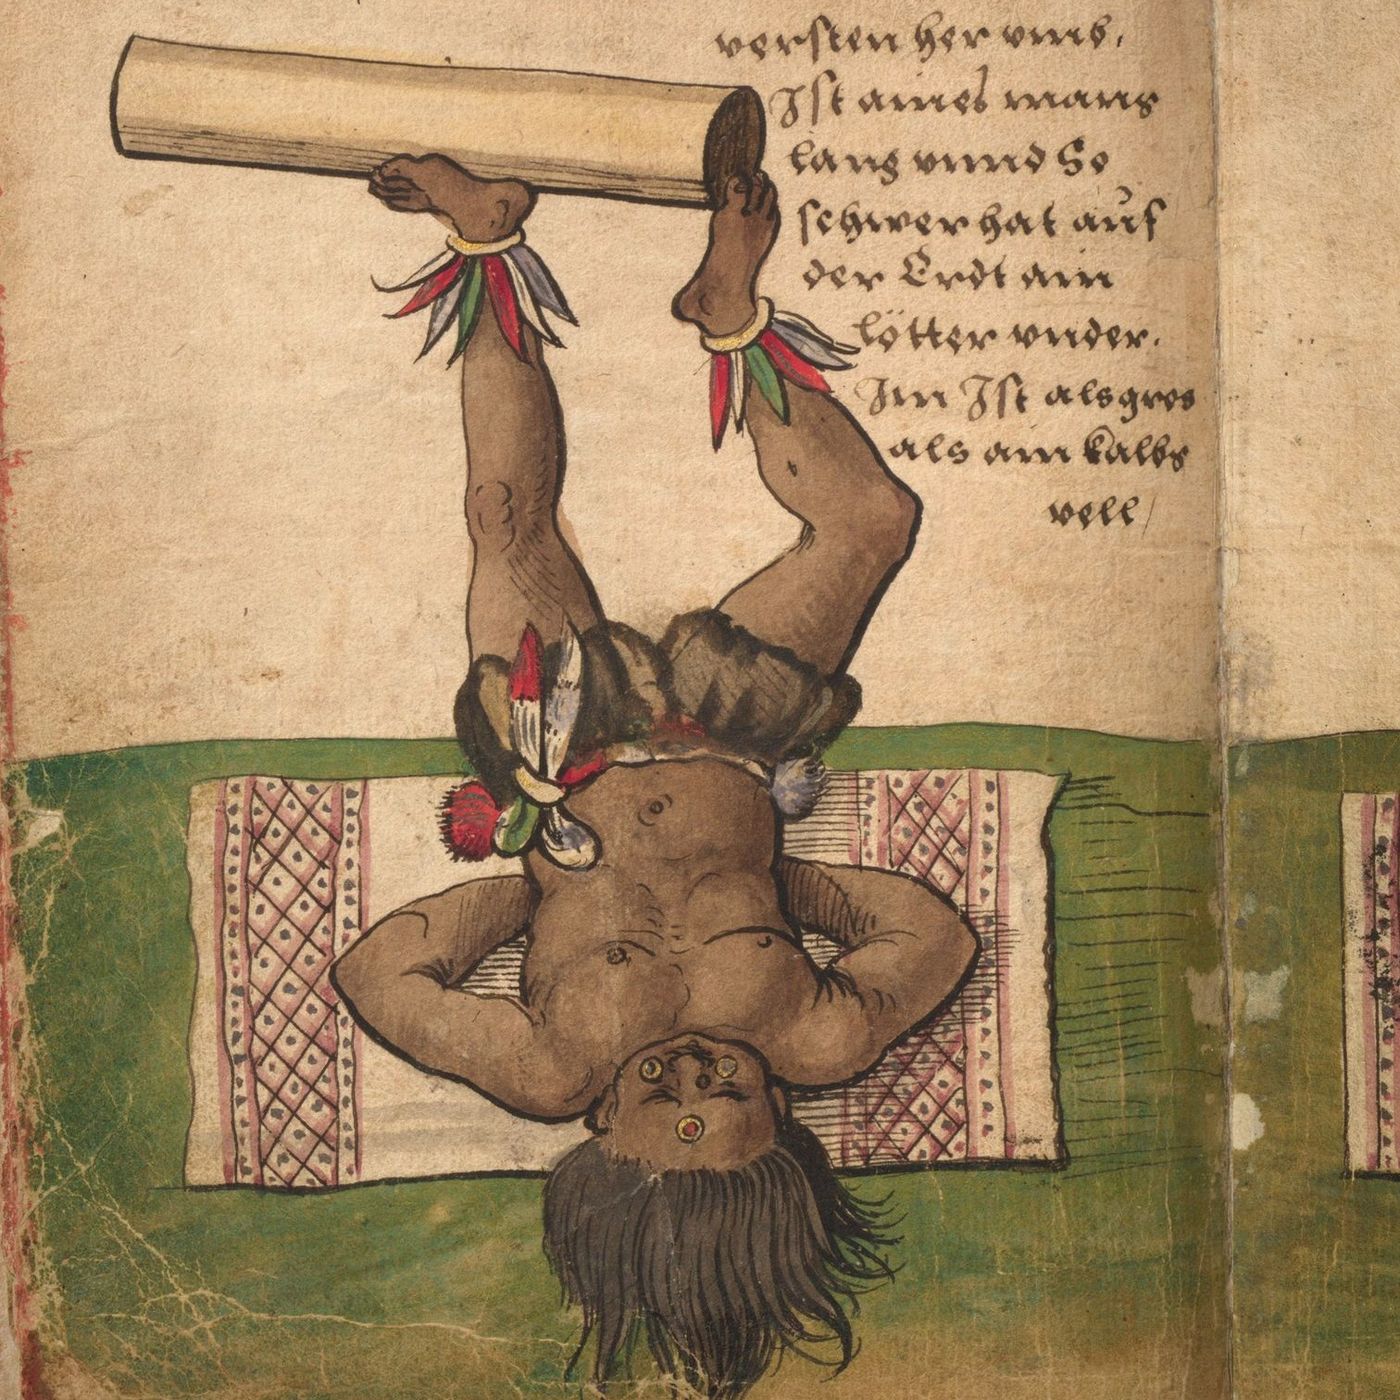 versten her vmb.
Ist aines mans
lang vnnd So
schwer hat auf
der Erdt ain
lötter vnder.
Im Ist als gros
als ain kalbs
vell